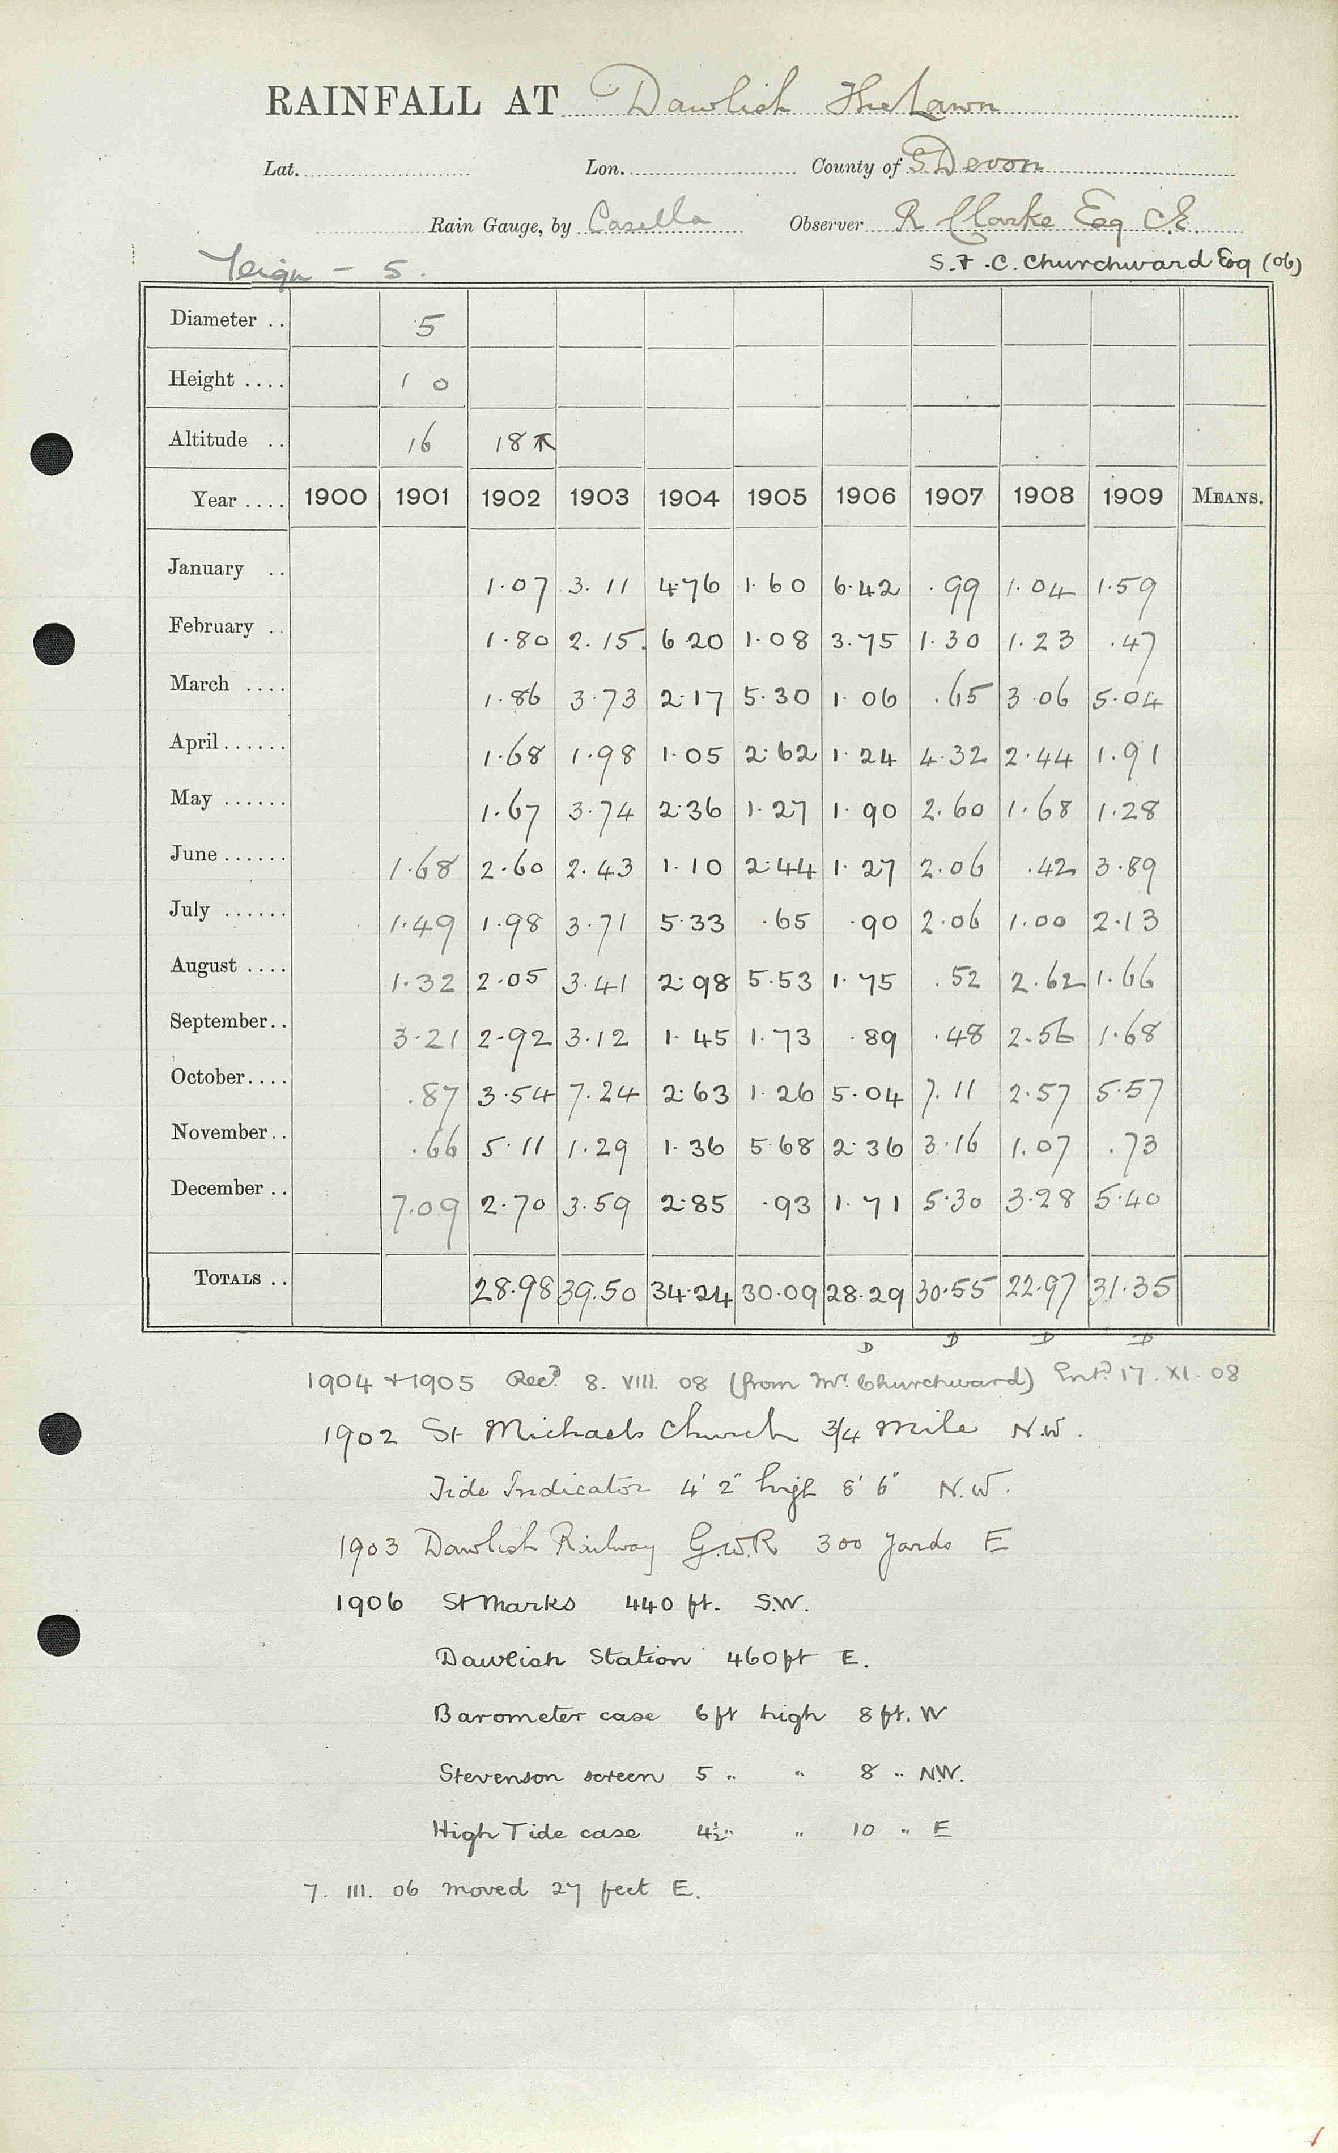 RAINFALL AT Dawlish The Lawn
Lat. Lon. County of S. Devon
Rain Gauge, by Casella Observer R Clarke Esq C.E.
Teign - 5. S. F. C. Churchward Esq (06)
Diameter .. 5
Height .... 1 0
Altitude .. 16 18
Year .... 1900 1901 1902 1903 1904 1905 1906 1907 1908 1909 MEANS.
January .. 1.07 3.11 4.76 1.60 6.42 .99 1.04 1.59
February .. 1.80 2.15 6.20 1.08 3.75 1.30 1.23 .47
March .... 1.86 3.73 2.17 5.30 1.06 .65 3.06 5.04
April...... 1.68 1.98 1.05 2.62 1.24 4.32 2.44 1.91
May ...... 1.67 3.74 2.36 1.27 1.90 2.60 1.68 1.28
June...... 1.68 2.60 2.43 1.10 2.44 1.27 2.06 .42 3.89
July ...... 1.49 1.98 3.71 5.33 .65 .90 2.06 1.00 2.13
August .... 1.32 2.05 3.41 2.98 5.53 1.75 .52 2.62 1.66
September.. 3.21 2.92 3.12 1.45 1.73 .89 .48 2.56 1.68
October.... .87 3.54 7.24 2.63 1.26 5.04 7.11 2.57 5.57
November.. .66 5.11 1.29 1.36 5.68 2.36 3.16 1.07 .73
December .. 7.09 2.70 3.59 2.85 .93 1.71 5.30 3.28 5.40
TOTALS .. 28.98 39.50 34.24 30.09 28.29 30.55 22.97 31.35
D D D D
1904 + 1905 Recd. 8. VIII. 08 (from Mr. Churchward) Entd. 17. XI. 08
1902 St Michaels Church 3/4 mile N.W.
Tide Indicator 4' 2" high 8' 6" N.W.
1903 Dawlish Railway G.W.R 300 yards E
1906 St Marks 440 ft. S.W.
Dawlish Station 460 ft E.
Barometer case 6 ft high 8 ft. W
Stevenson screen 5 " " 8 " N.W.
High Tide case 4½" " 10 " E
7. III. 06 moved 27 feet E.